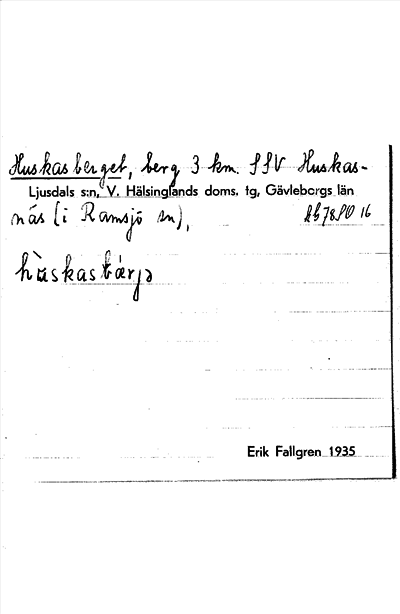 Huskasberget, berg 3 km. SSV Huskas-
Ljusdals s:n, V. Hälsinglands doms. tg, Gävleborgs län
näs (i Ramsjö sn),
Erik Fallgren 1935